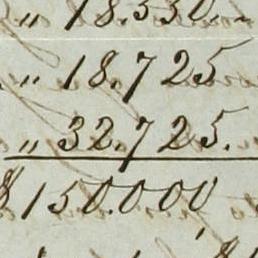 „ 18.550.
„ 18.725
„ 32.725.
$150.000,